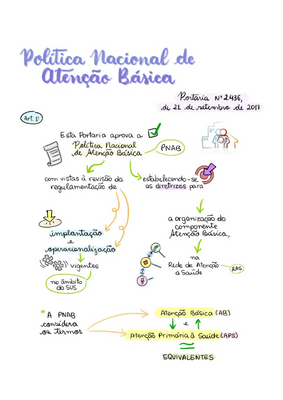 Política Nacional de
Atenção Básica
Portaria Nº 2.436,
de 21 de setembro de 2017
Art. 1º
Esta Portaria aprova a
Política Nacional
de Atenção Básica
PNAB
com vistas à revisão da
regulamentação de
estabelecendo-se
as diretrizes para
implantação
e
operacionalização
vigentes
no âmbito
do SUS
a organização do
componente
Atenção Básica,
na
Rede de Atenção
à Saúde
RAS
* A PNAB
considera
os termos
Atenção Básica (AB)
e
Atenção Primária à Saúde (APS)
=
EQUIVALENTES